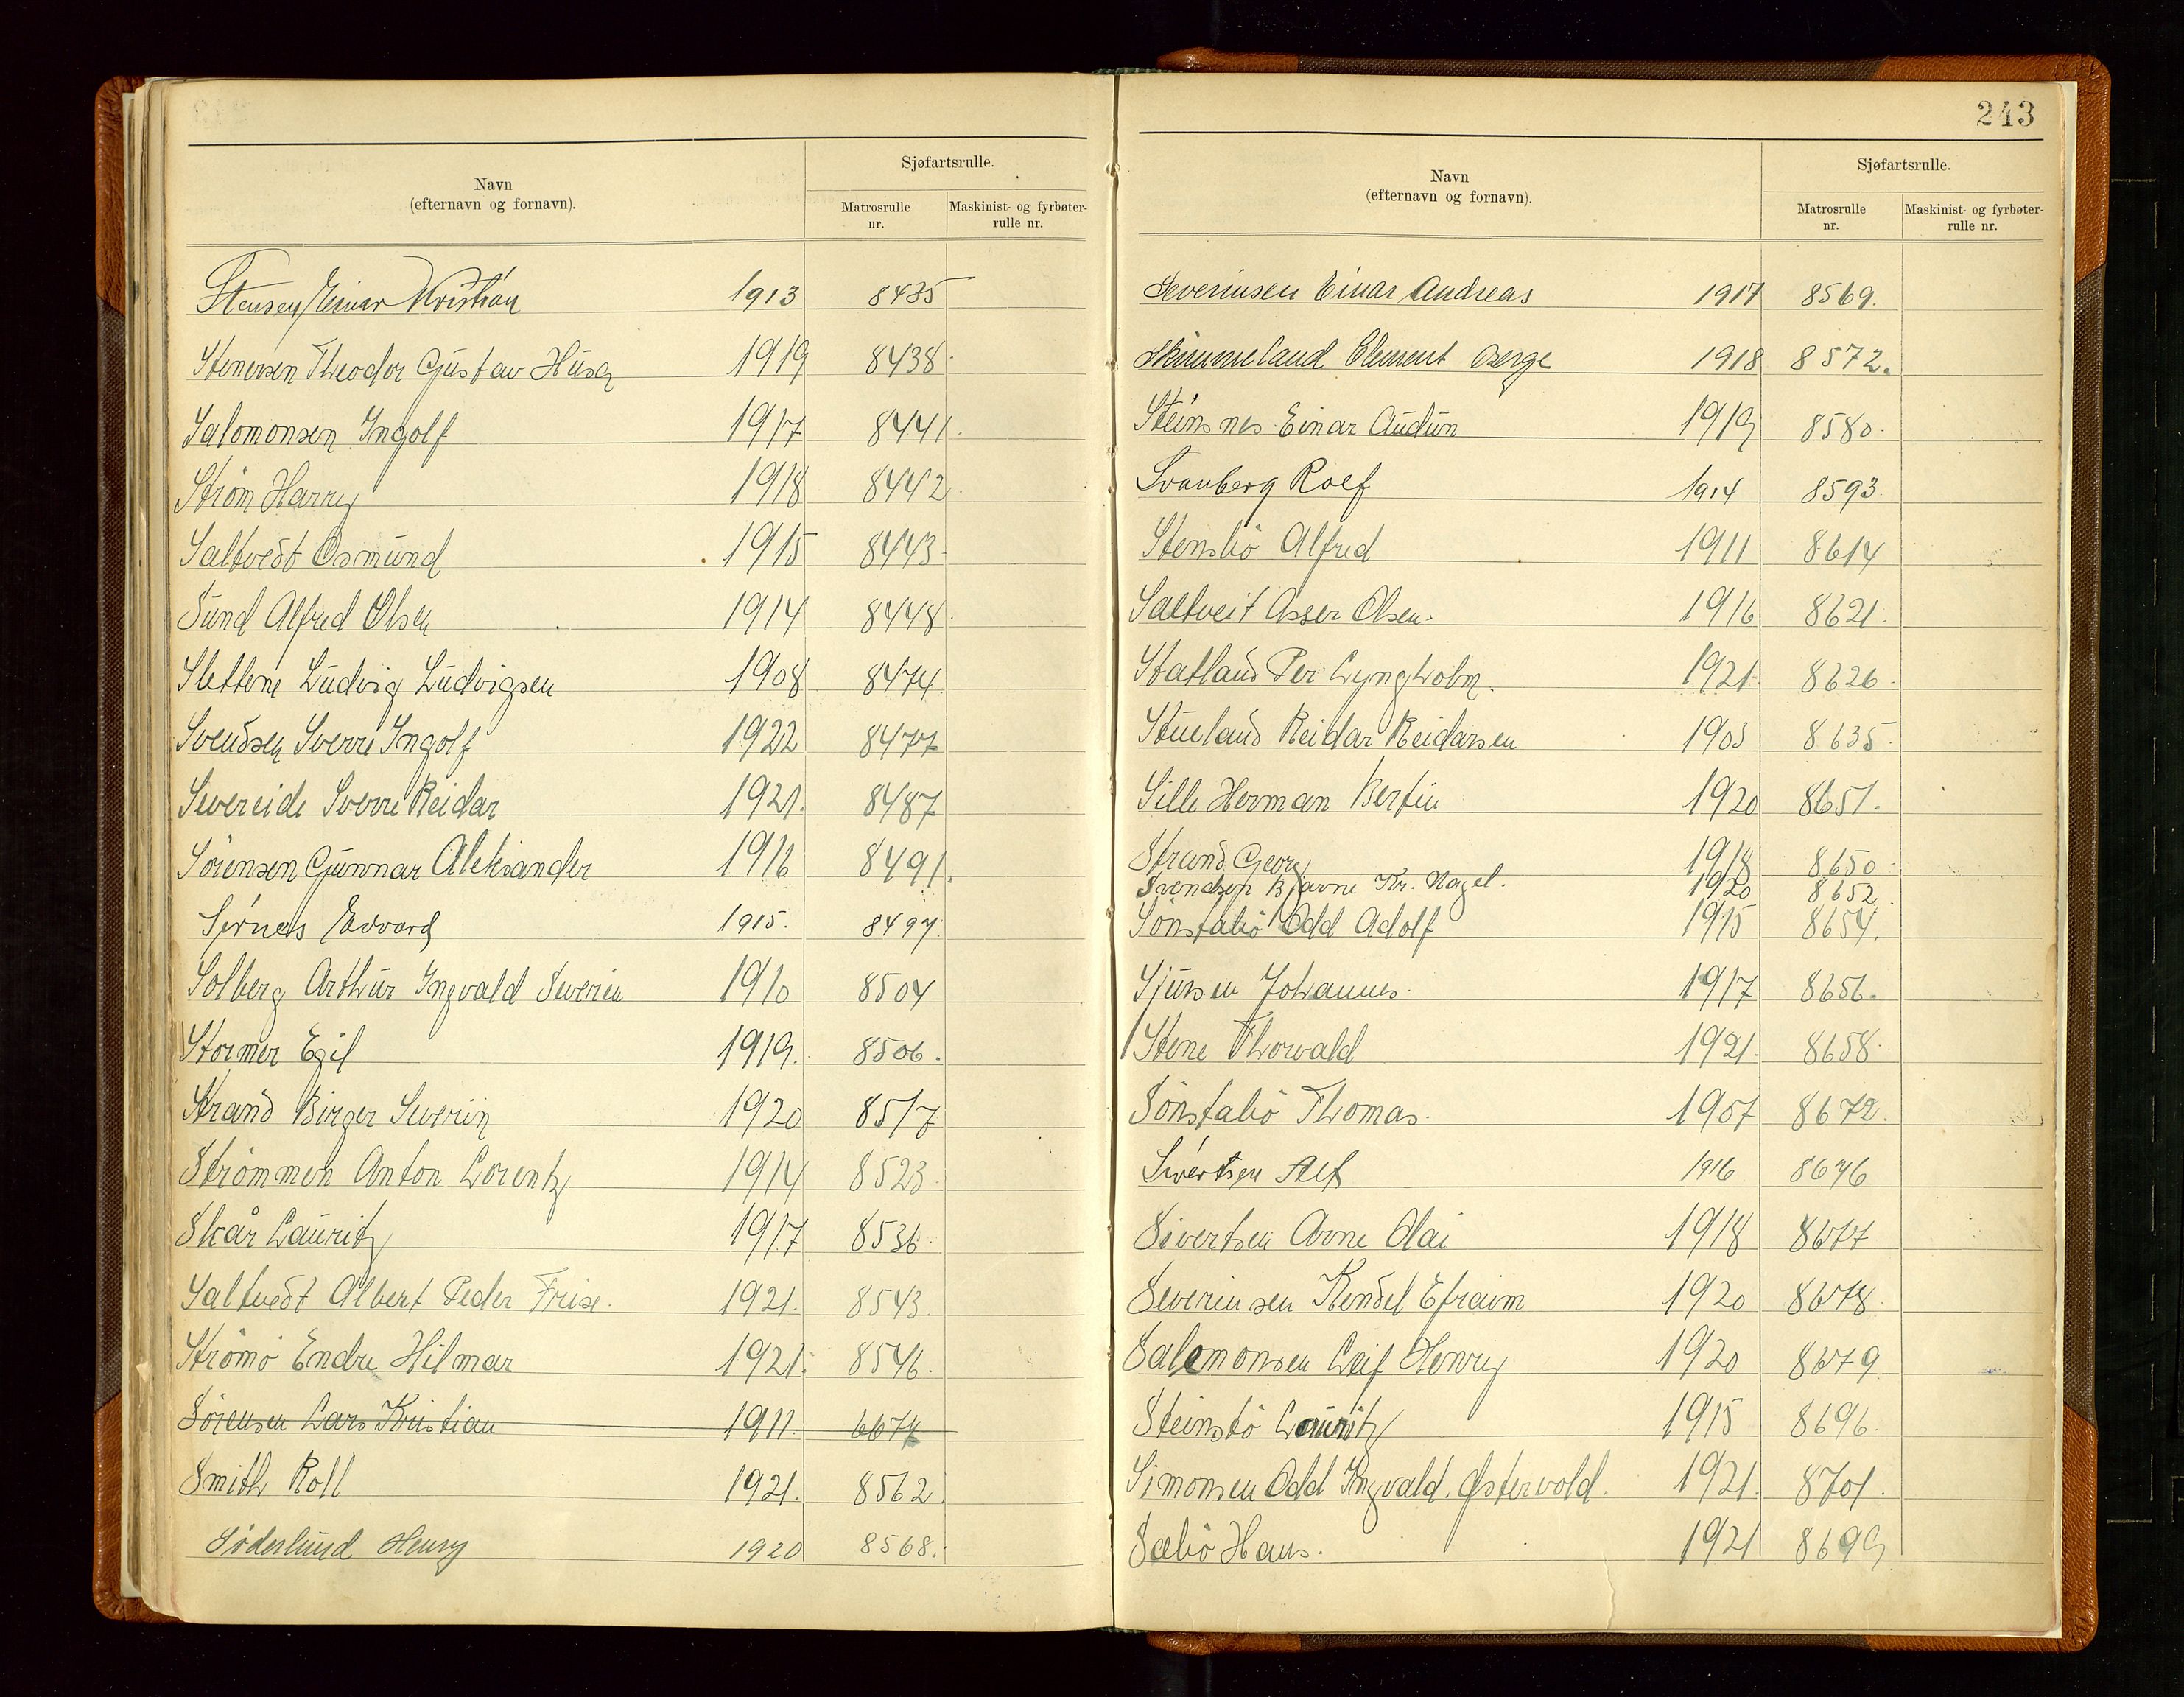 Navn
(efternavn og fornavn).
Sjøfartsrulle.
Matrosrulle
nr.
Maskinist- og fyrbøter-
rulle nr.
Stensen Einar Kristian 1913 8435
Stenersen Theodor Gustav Husa 1919 8438.
Salomonsen Ingolf 1917 8441.
Strøm Harry 1918 8442.
Saltvedt Osmund 1915 8443
Sund Alfred Olsen 1914 8448.
Slettene Ludvig Ludvigsen 1908 8474
Svendsen Sverre Ingolf 1922 8477
Severeide Sverre Reidar 1921. 8487
Sørensen Gunnar Aleksander 1916 8491.
Edvard 1915. 8497.
Solberg Arthur Ingvald Severin 1910 8504
Stormer Egil 1919. 8506.
Strand Birger Severin 1920 8517
Strømmen Anton Lorentz 1914 8523.
Skår Lauritz 1917 8536.
Saltvedt Albert Peder Friise. 1921. 8543.
Strømø Endre Hilmar 1921. 8546.
Sørensen Lars Kristian 1911. 6674
Smith Roll 1921. 8562.
Søderlund Henry 1920 8568.
243
Navn
(efternavn og fornavn).
Sjøfartsrulle.
Matrosrulle
nr.
Maskinist- og fyrbøter-
rulle nr.
Severinsen Einar Andreas 1917 8569.
Skimmeland Clement Berge 1918 8572.
Steinsnes Einar Audun 1919 8580.
Svanberg Rolf 1914 8593.
Stensbø Alfred 1911 8614
Saltveit Asser Olsen. 1916 8621.
Statland Per Lyngholm. 1921. 8626.
Stueland Reidar Reidarsen 1903 8635.
Sille Herman Bertin 1920 8651.
Strand Georg 1918 8650
Svendsen Bjarne Kr. Nagel. 1920 8652.
Sønstabø Odd Adolf 1915 8654.
Sjursen Johannes. 1917 8656.
Stene Thorvald 1921. 8658.
Sønstabø Thomas. 1907 8672.
Sivertsen Alf 1916 8676
Sivertsen Arne Olai 1918 8677
Severinsen Kendel Efraim 1920 8678.
Salomonsen Leif Henry 1920 8679
Steinsbø Lauritz 1915 8696.
Simonsen Odd Ingvald. Østervold. 1921. 8701.
Sæbø Hans. 1921 8699